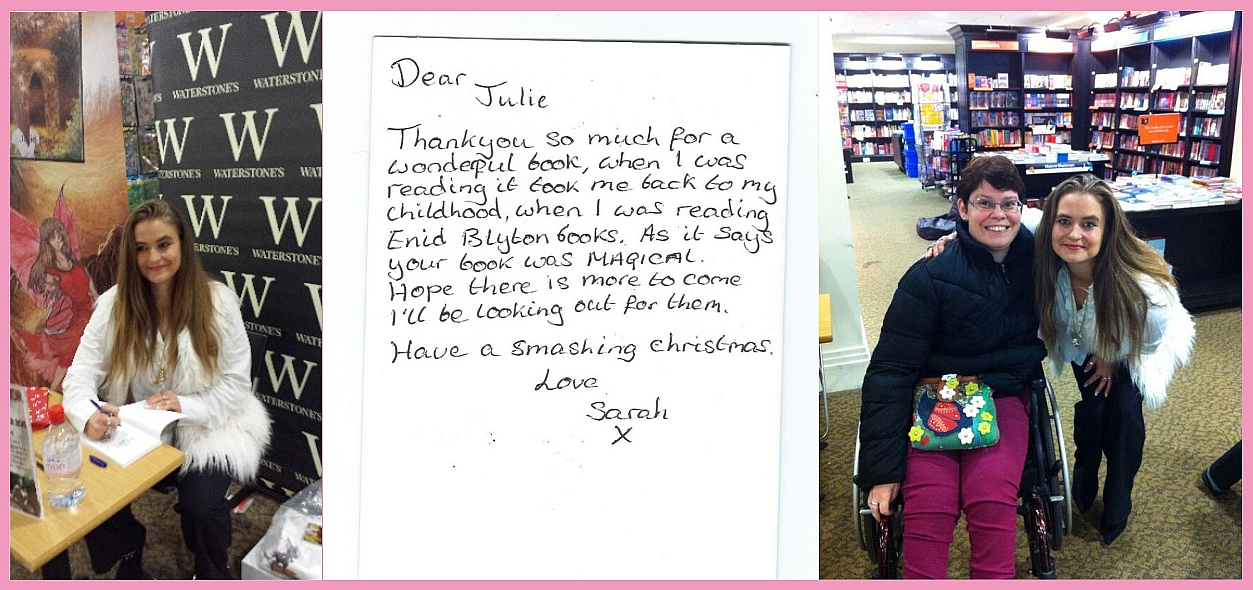 WATERSTONE'S
W W
WATERSTONE'S WATERSTONE'S
W W
WATERSTONE'S WATERSTONE'S
W W
WATERSTONE'S WATERSTONE'S
W
WATERSTONE'S
W
WATERSTONE'S
Dear
Julie
Thankyou so much for a
wondeful book, when I was
reading it took me back to my
childhood, when I was reading
Enid Blyton books. As it says
your book was MAGICAL.
Hope there is more to come
I'll be looking out for them.
Have a smashing christmas.
Love
Sarah
X
Malorie Blackman